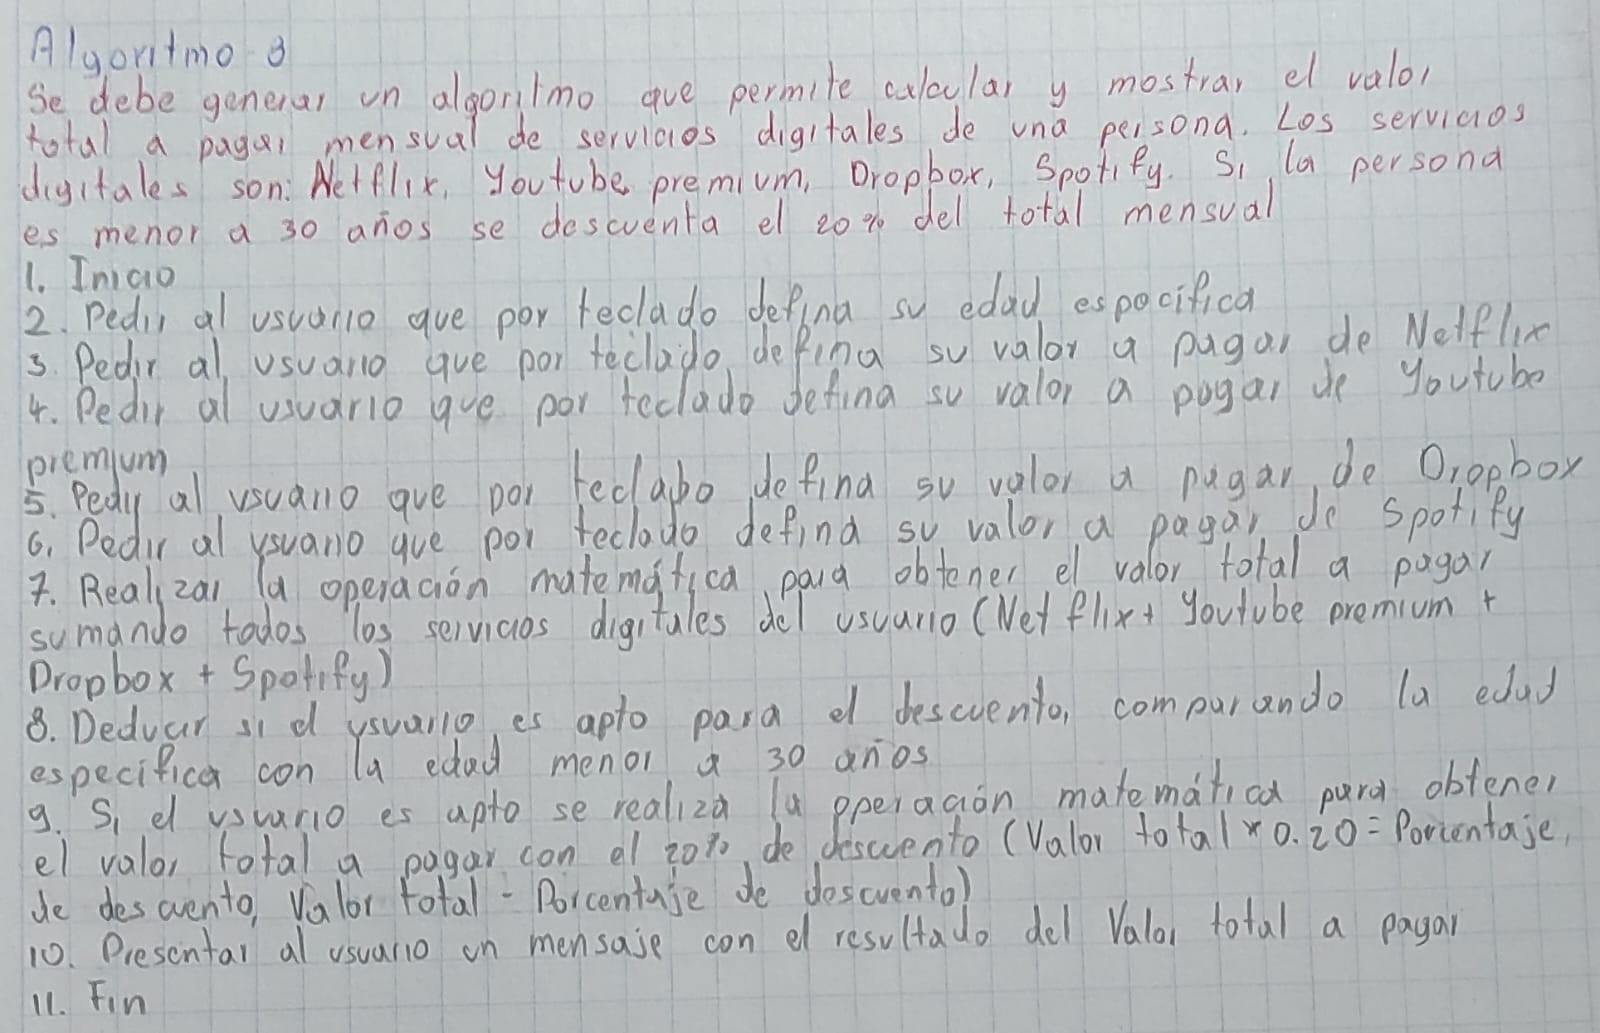 Algoritmo 3
Se debe generar un algoritmo que permite calcular y mostrar el valor
total a pagar mensual de servicios digitales de una persona. Los servicios
digitales son: Netflix, Youtube premium, Dropbox, Spotify. Si la persona
es menor a 30 años se descuenta el 20% del total mensual
1. Inicio
2. Pedir al usuario que por teclado defina su edad especifica
3. Pedir al usuario que por teclado defina su valor a pagar de Netflix
4. Pedir al usuario que por teclado defina su valor a pagar de Youtube
premium
5. Pedir al usuario que por teclabo defina su valor a pagar de Dropbox
6. Pedir al usuario que por teclado defina su valor a pagar de Spotify
7. Realizar la operación matemática para obtener el valor total a pagar
sumando todos los servicios digitales del usuario (Netflix + Youtube premium +
Dropbox + Spotify)
8. Deducir si el usuario es apto para el descuento, comparando la edad
especifica con la edad menor a 30 años
9. Si el usuario es apto se realiza la operación matemática para obtener
el valor total a pagar con el 20% de descuento (Valor total * 0.20 = Porcentaje
de descuento, Valor total - Porcentaje de descuento)
10. Presentar al usuario un mensaje con el resultado del Valor total a pagar
11. Fin